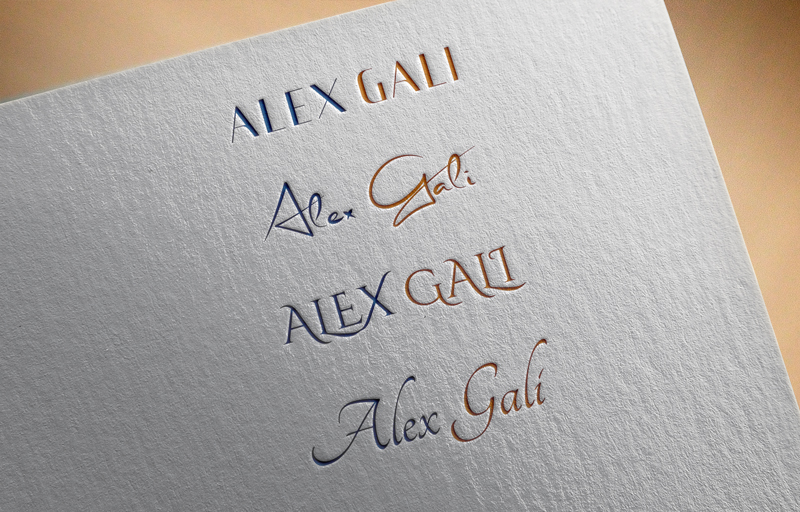 ALEX GALI
Alex Gali
ALEX GALI
Alex Gali